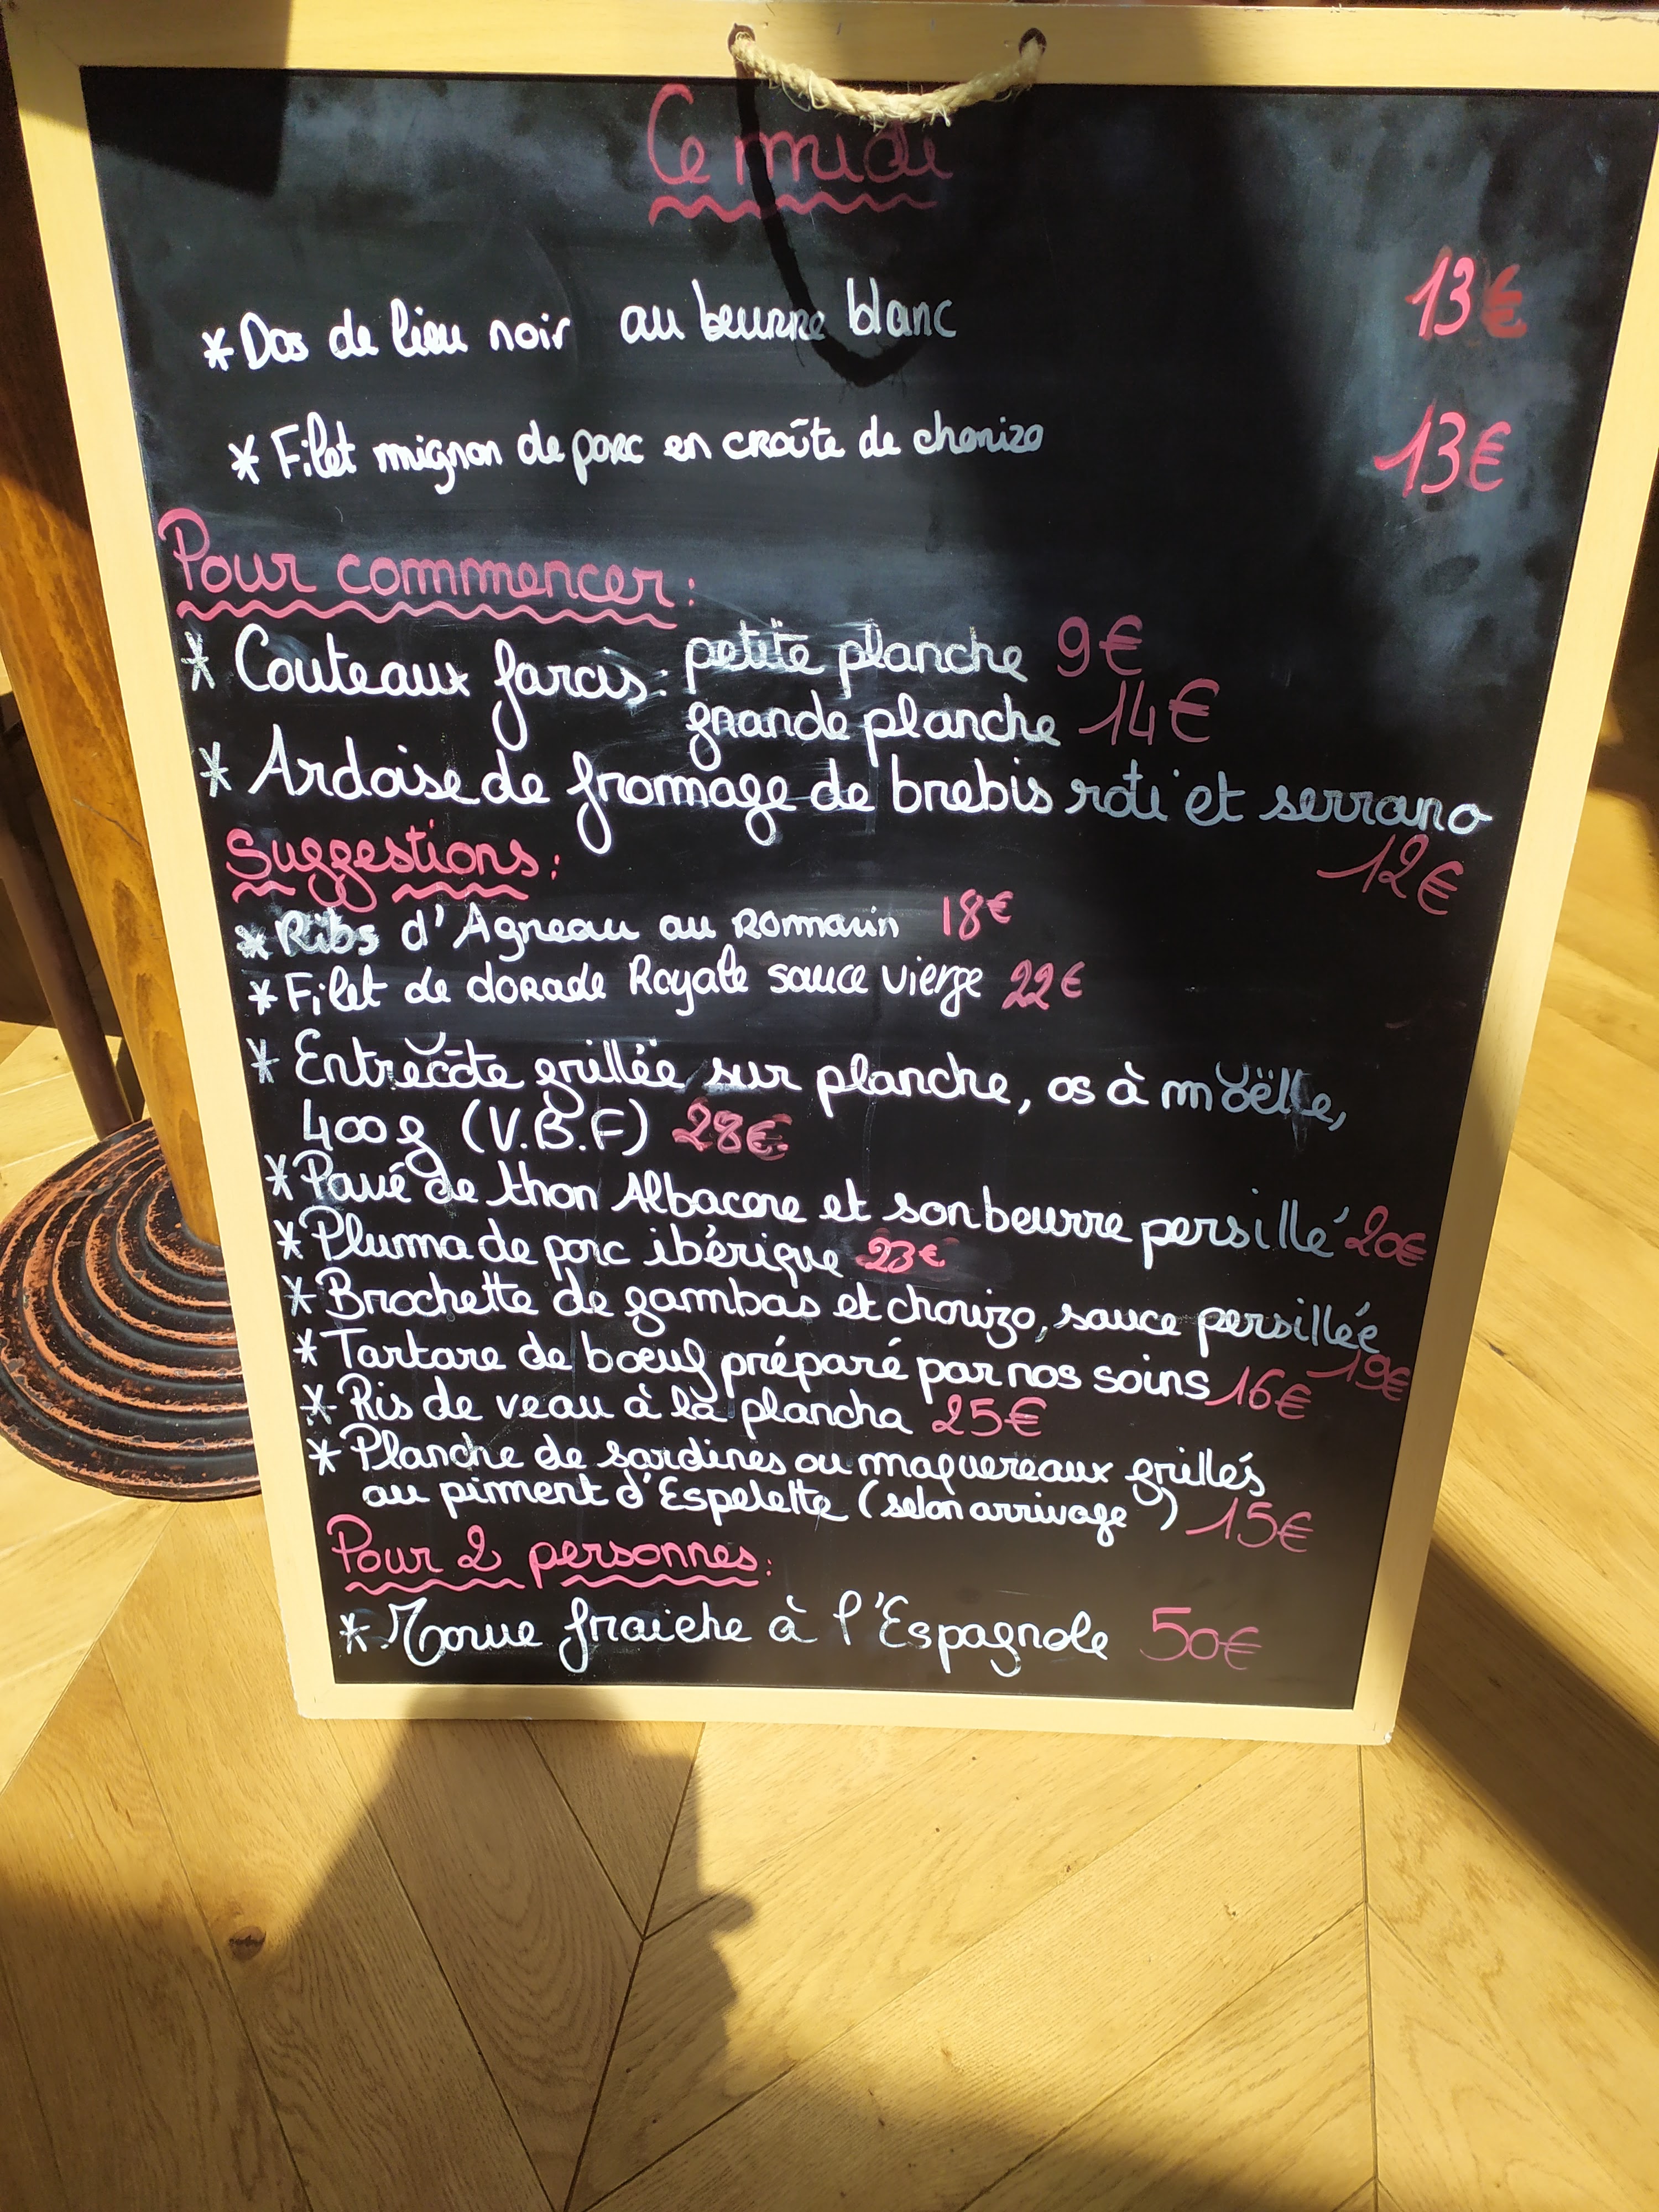 Ce midi
* Dos de lieu noir au beurre blanc 13€
* Filet mignon de porc en croûte de chorizo 13€
Pour commencer :
* Couteaux farcis : petite planche 9€
grande planche 14€
* Ardoise de fromage de brebis roti et serrano
12€
Suggestions :
* Ribs d'Agneau au Romarin 18€
* Filet de dorade Royale sauce vierge 22€
* Entrecôte grillée sur planche, os à moëlle,
400g (V.B.F) 28€
* Pavé de thon Albacore et son beurre persillé 20€
* Pluma de porc ibérique 23€
* Brochette de gambas et chorizo, sauce persillée
19€
* Tartare de boeuf préparé par nos soins 16€
* Ris de veau à la plancha 25€
* Planche de sardines ou maquereaux grillés
au piment d'Espelette (selon arrivage) 15€
Pour 2 personnes :
* Morue fraiche à l'Espagnole 50€